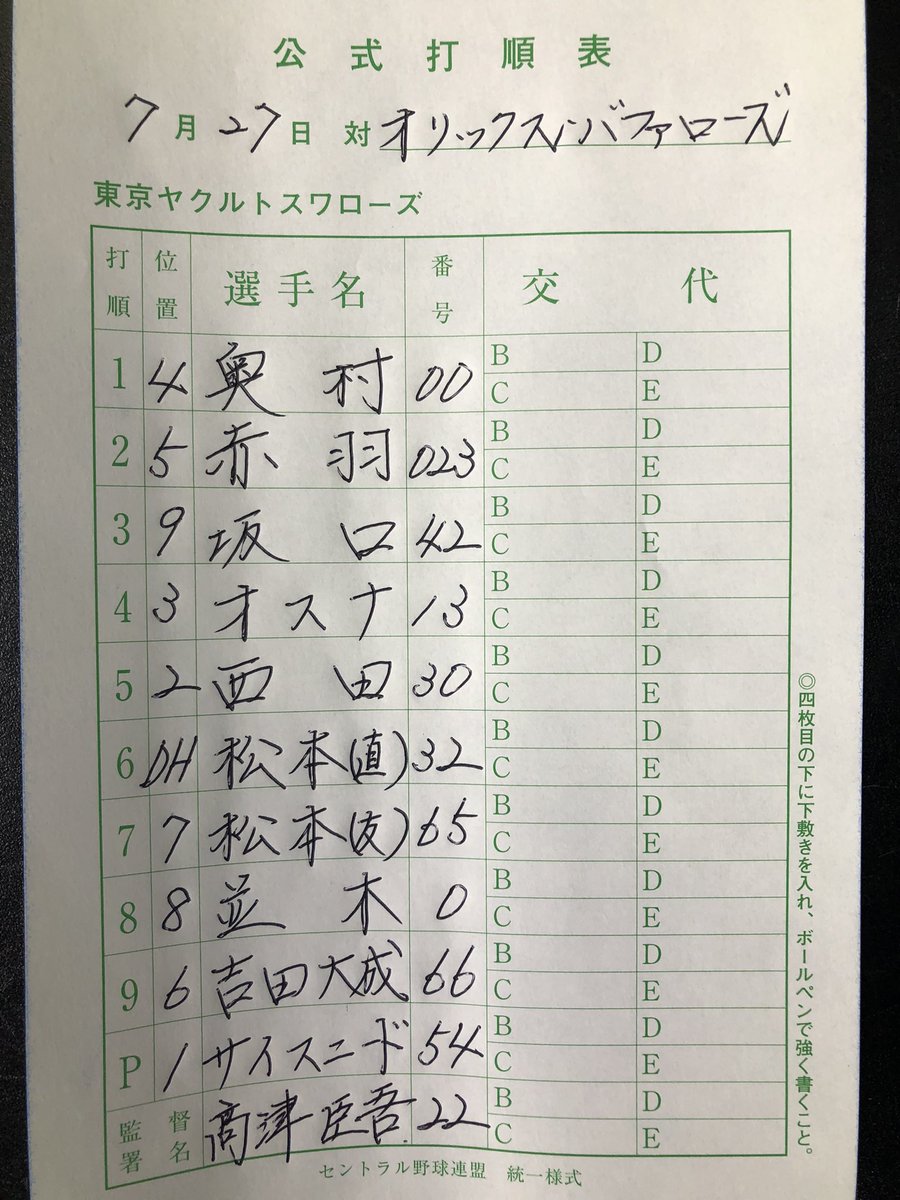 公式打順表
7月27日 対 オリックス・バファローズ
東京ヤクルトスワローズ
打順 位置 選手名 番号 交代
1 4 奥村 00 B D
C E
2 5 赤羽 023 B D
C E
3 9 坂口 42 B D
C E
4 3 オスナ 13 B D
C E
5 2 西田 30 B D
C E
6 DH 松本(直) 32 B D
C E
7 7 松本(友) 65 B D
C E
8 8 並木 0 B D
C E
9 6 吉田大成 66 B D
C E
P 1 サイスニード 54 B D
C E
監督署名 高津臣吾 22 B D
C E
セントラル野球連盟 統一様式
◎四枚目の下に下敷きを入れ、ボールペンで強く書くこと。